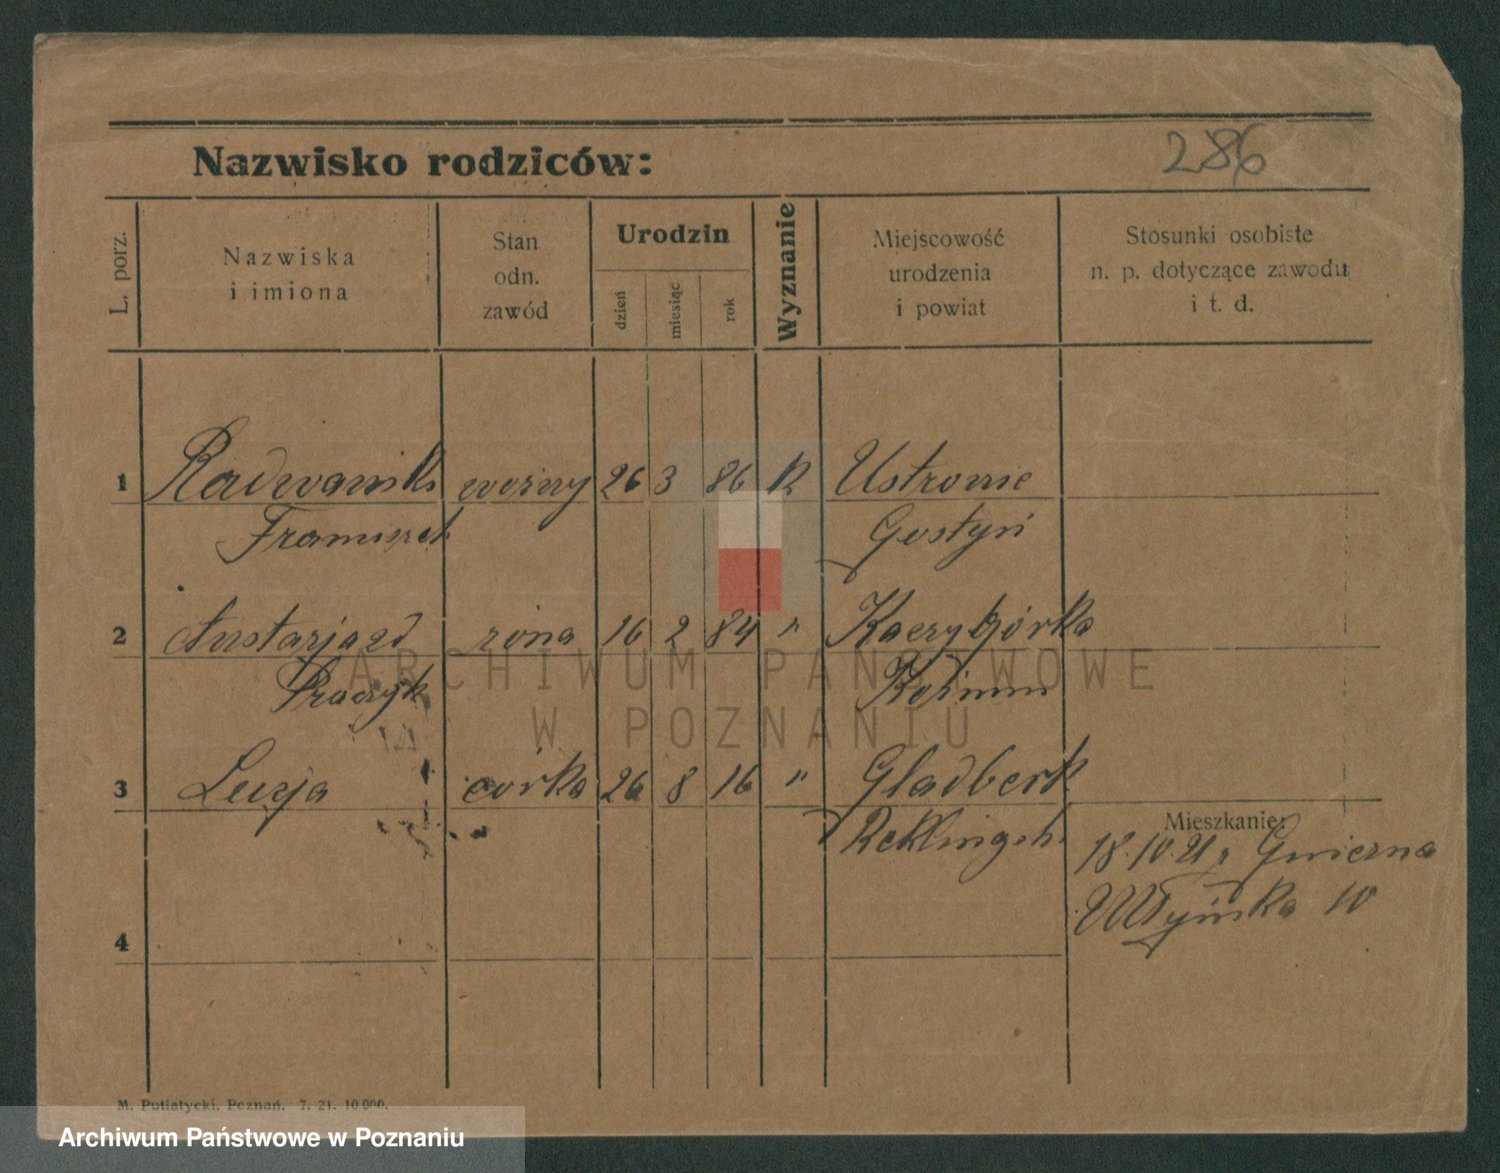 286
Nazwisko rodziców:
L. porz.
Nazwiska
i imiona
Stan
odn.
zawód
Urodzin
dzień
miesiąc
rok
Wyznanie
Miejscowość
urodzenia
i powiat
Stosunki osobiste
n. p. dotyczące zawodu
i t. d.
1 Radwański woźny 26 3 86 R Ustronie
Franciszek Gostyń
2 żona 16 2 84 " Kaczagórka
Ptaczyk Koźmin
3 Lucja córka 26 8 16 " Gladbeck
Reklingsh.
Mieszkanie:
18.10.21 Gnieźna
Młyńska 10
4
M. Putiatycki, Poznań. 7. 21. 10 000.
ARCHIWUM PAŃSTWOWE
W POZNANIU
Archiwum Państwowe w Poznaniu